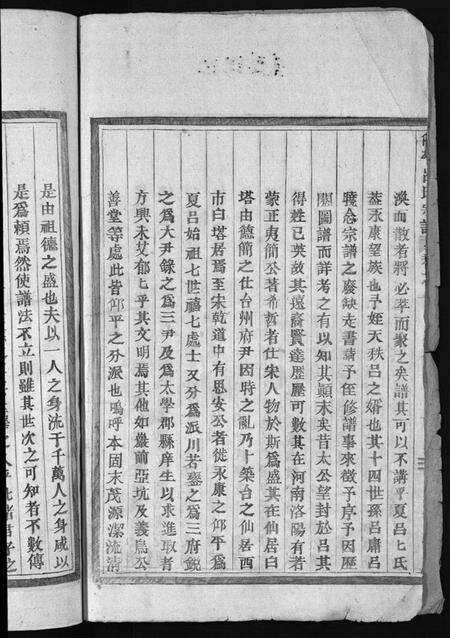 渙而散者將必萃而聚之矣譜其可以不講乎夏呂七氏
蓋永康望族也予姪天秩呂之婿也其十四世孫呂庸呂
念宗譜之廢缺走書請予侄修譜事來徵予序予因歷
關圖譜而詳考之有以知其顛末矣昔太公望封於呂其
得姓已矣故其遠裔賢達歷歷可數其在河南洛陽有若
蒙正夷簡公著希哲者仕宋人物於斯爲盛其在仙居白
塔由億簡之仕台州府尹因時之亂乃卜築台之仙居西
市白塔居焉至宋乾道中有思安公者徙永康之仰平爲
夏呂始祖七世禧七處士又分爲派川若鋆之爲三府銳
之爲大尹錄之爲三尹及爲太學郡縣庠生以求進取者
方興未艾郁乎其文明焉其他如巖前亞坑及義烏公
善堂等處此皆仰平之分派也嗚呼本固末茂源潔流清
是由祖德之盛也夫以一人之身流于千萬人之身咸以
是爲賴焉然使譜法不立則雖其世次之可知者不數傳